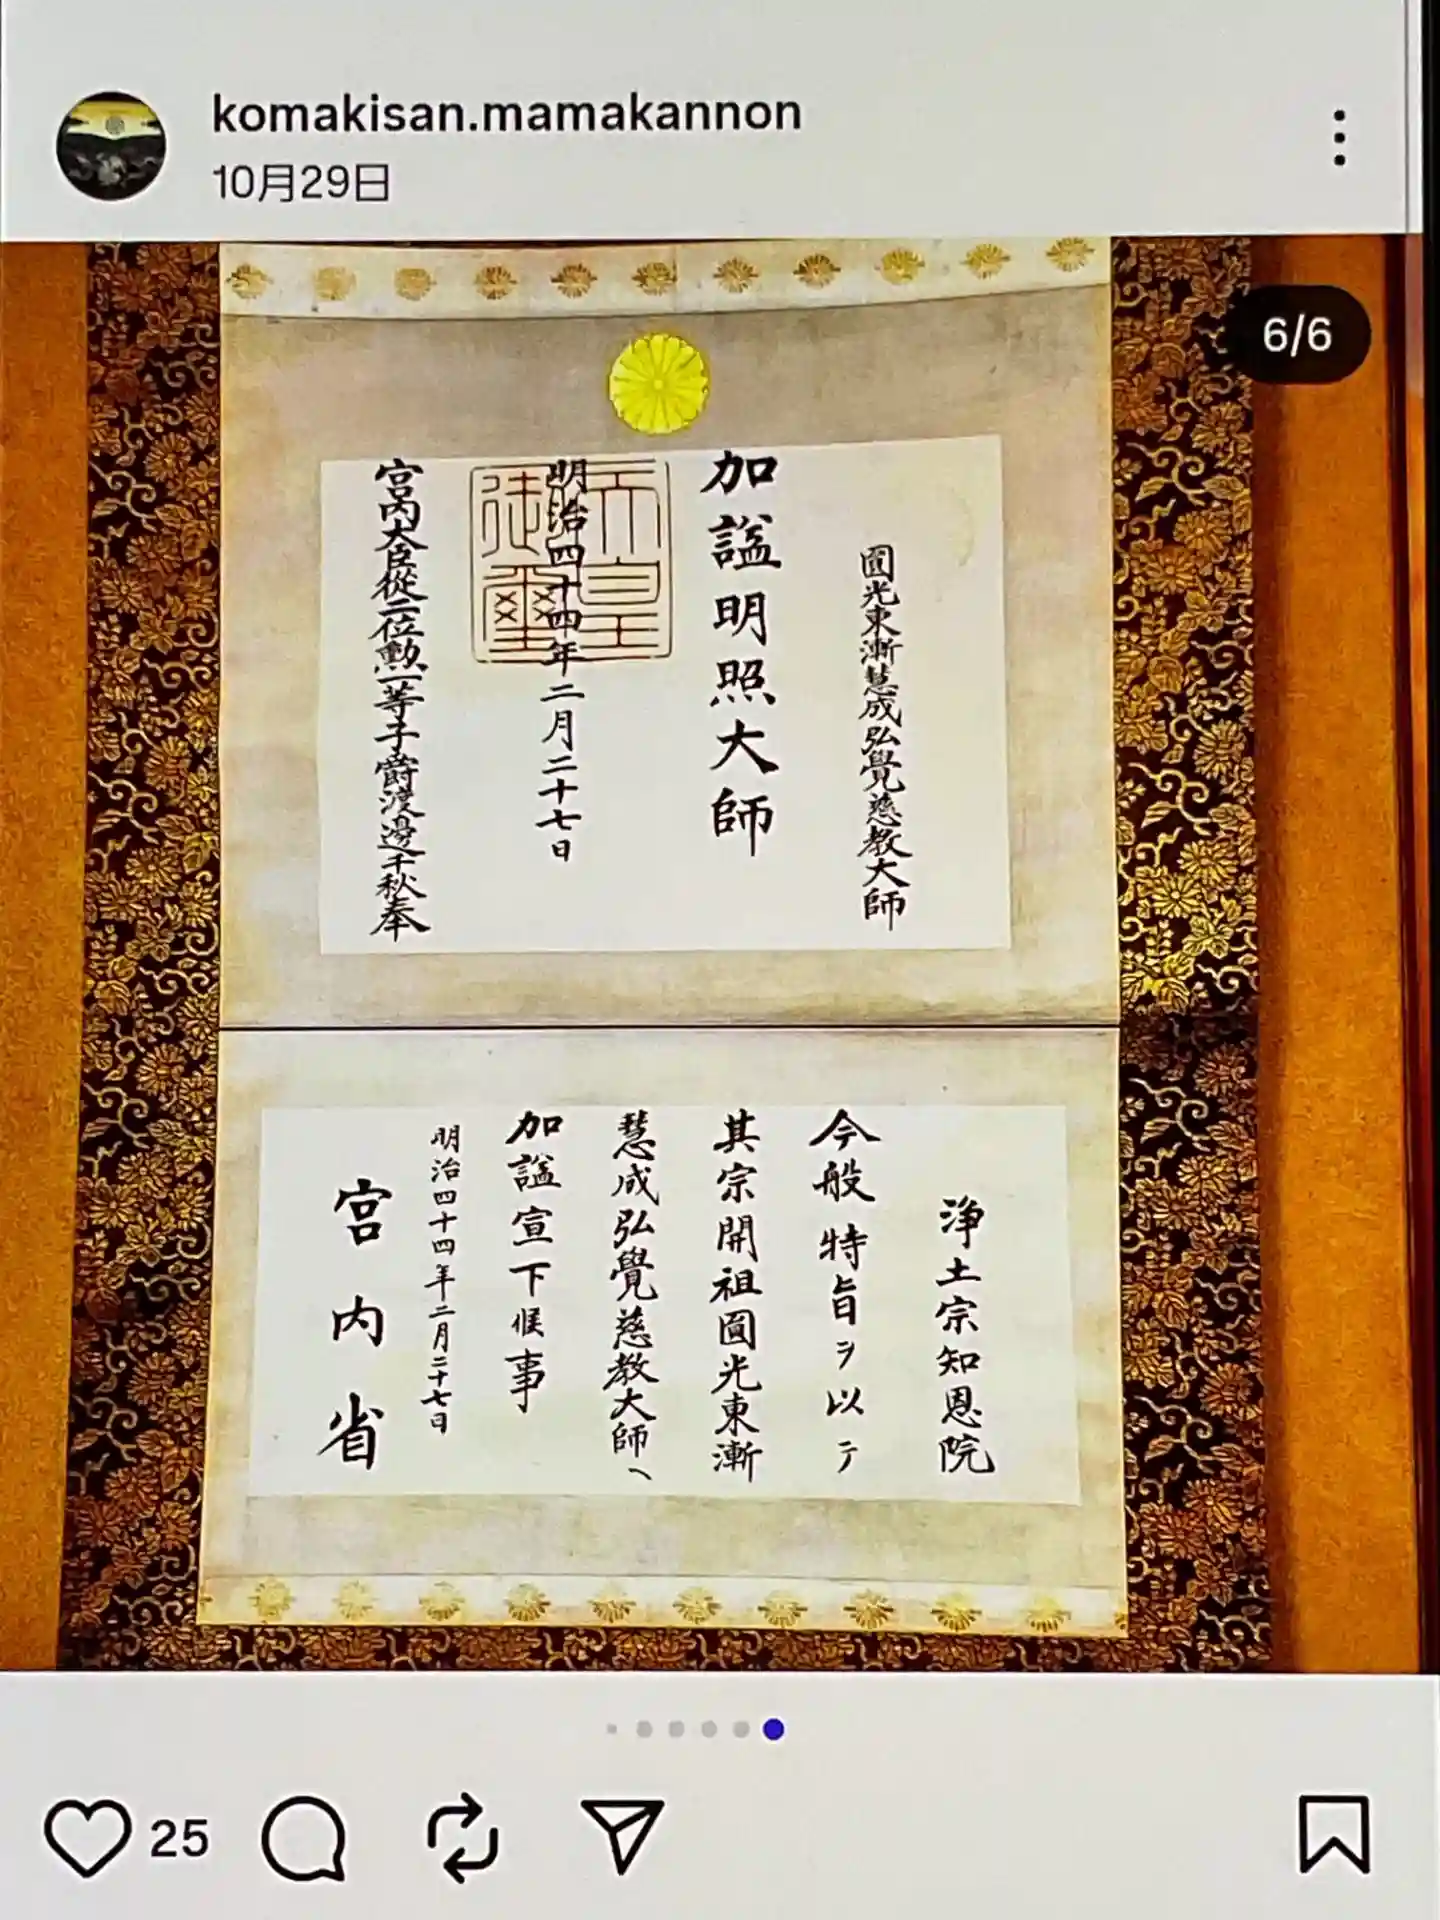 komakisan.mamakannon
10月29日
6/6
圓光東漸慧成弘覺慈教大師
加諡明照大師
明治四十四年二月二十七日
天皇
御璽
宮内大臣從二位勲一等子爵渡邊千秋奉
浄土宗知恩院
今般特旨ヲ以テ
其宗開祖圓光東漸
慧成弘覺慈教大師ヘ
加諡宣下候事
明治四十四年二月二十七日
宮内省
25